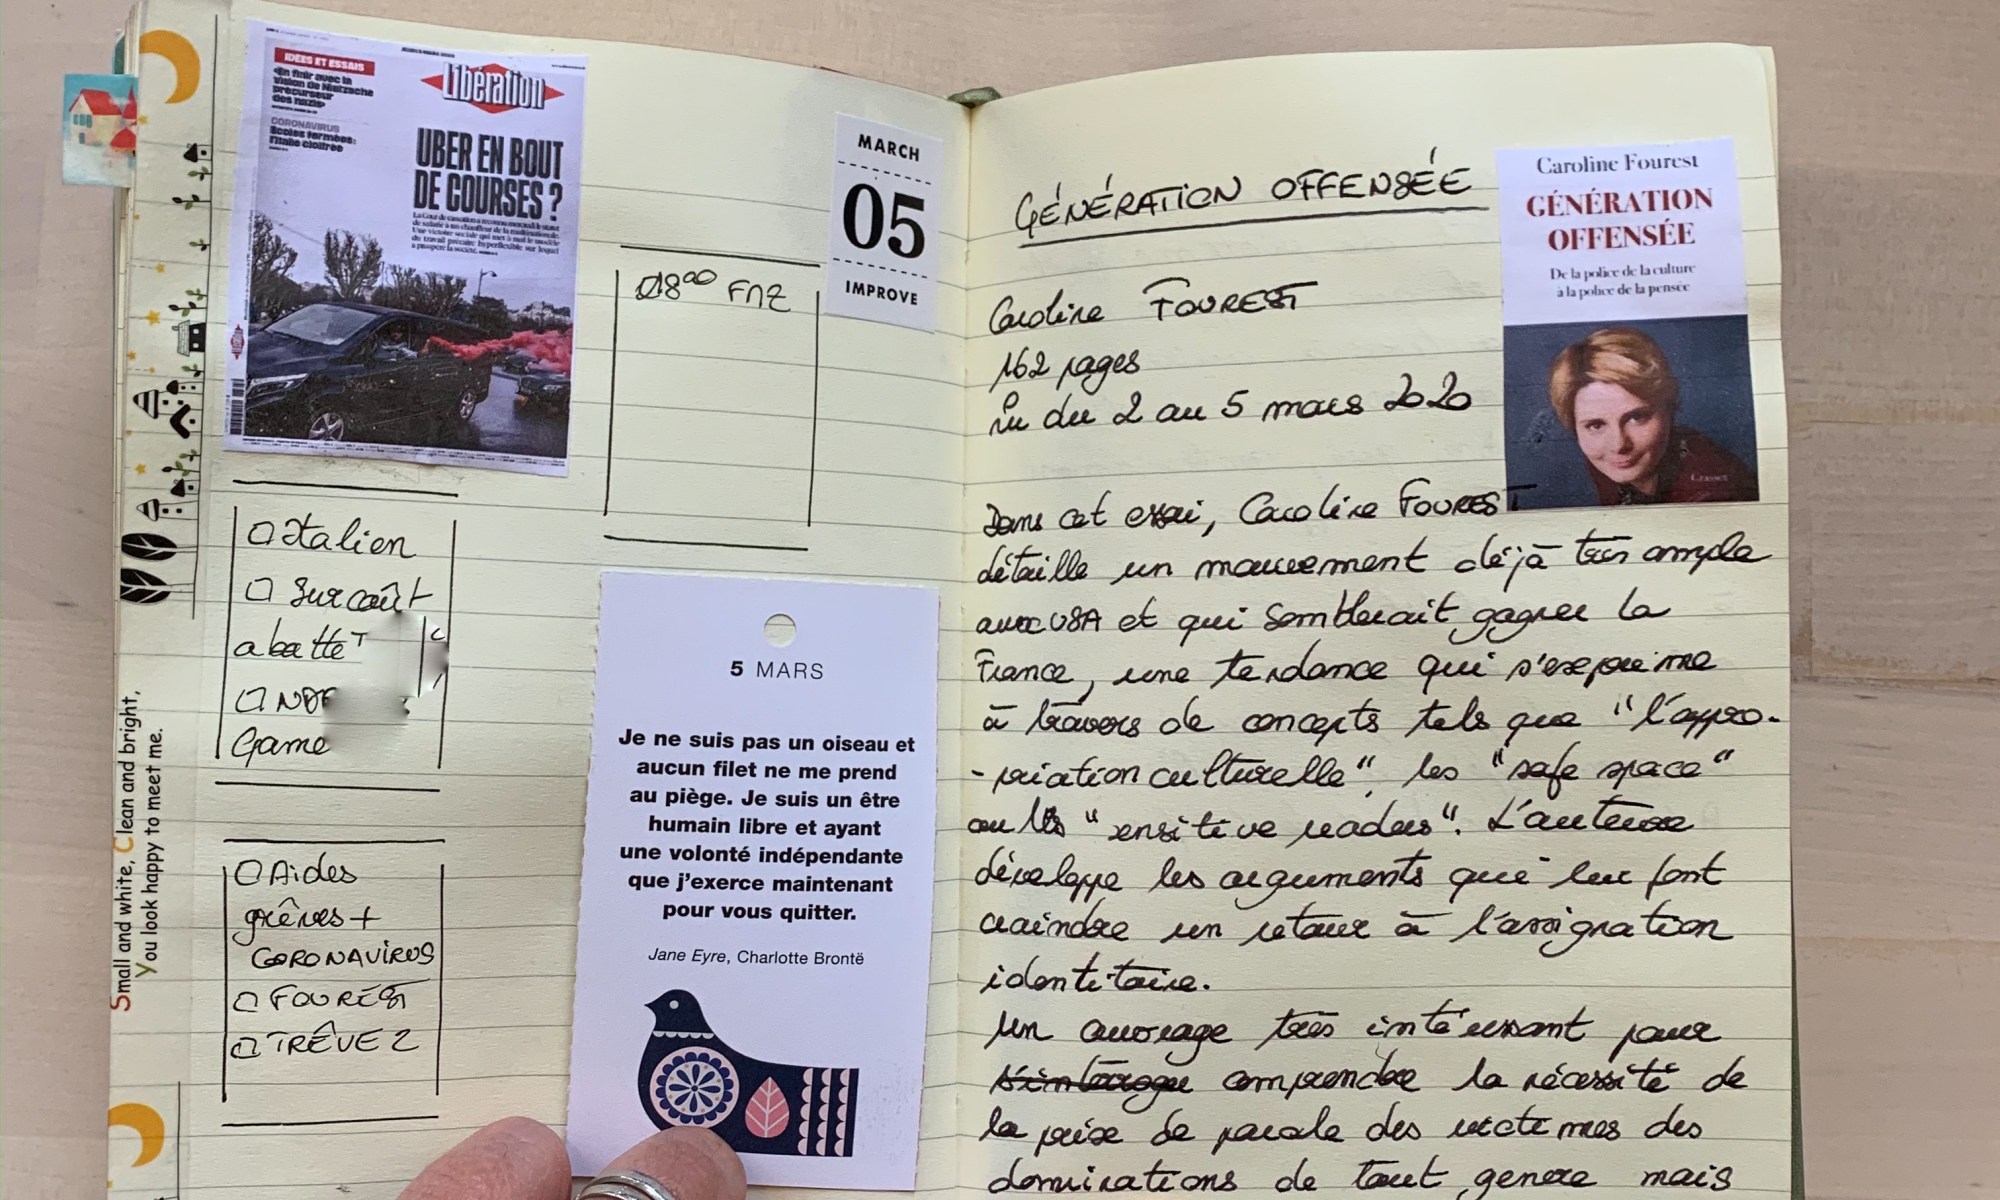 IDÉES ET ESSAIS
«En finir avec la
vision de Nietzsche
précurseur
des nazis»
CORONAVIRUS
Ecoles fermées:
l'Italie cloîtrée
Libération
UBER EN BOUT
DE COURSES ?
La Cour de cassation a reconnu mercredi le statut
de salarié à un chauffeur de la multinationale.
Une victoire sociale qui met à mal le modèle
du travail précaire hyperflexible sur lequel
a prospéré la société.
MARCH
05
IMPROVE
18°° FNZ
Italien
Surcoût
abattet
NDF
Game
Aides
grèves +
CORONAVIRUS
FOUREST
TRÊVE 2
Small and white, Clean and bright,
You look happy to meet me.
5 MARS
Je ne suis pas un oiseau et
aucun filet ne me prend
au piège. Je suis un être
humain libre et ayant
une volonté indépendante
que j'exerce maintenant
pour vous quitter.
Jane Eyre, Charlotte Brontë
GÉNÉRATION OFFENSÉE
Caroline FOUREST
162 pages
lu du 2 au 5 mars 2020
Caroline Fourest
GÉNÉRATION
OFFENSÉE
De la police de la culture
à la police de la pensée
Grasset
Dans cet essai, Caroline FOUREST
détaille un mouvement déjà très ample
aux USA et qui semblerait gagner la
France, une tendance qui s'exprime
à travers de concepts tels que "l'appro-
-priation culturelle", les "safe space"
ou les "sensitive readers". L'auteure
développe les arguments qui lui font
craindre un retour à l'assignation
identitaire.
Un ouvrage très intéressant pour
s'interroger comprendre la nécessité de
la prise de parole des victimes des
dominations de tout genre mais